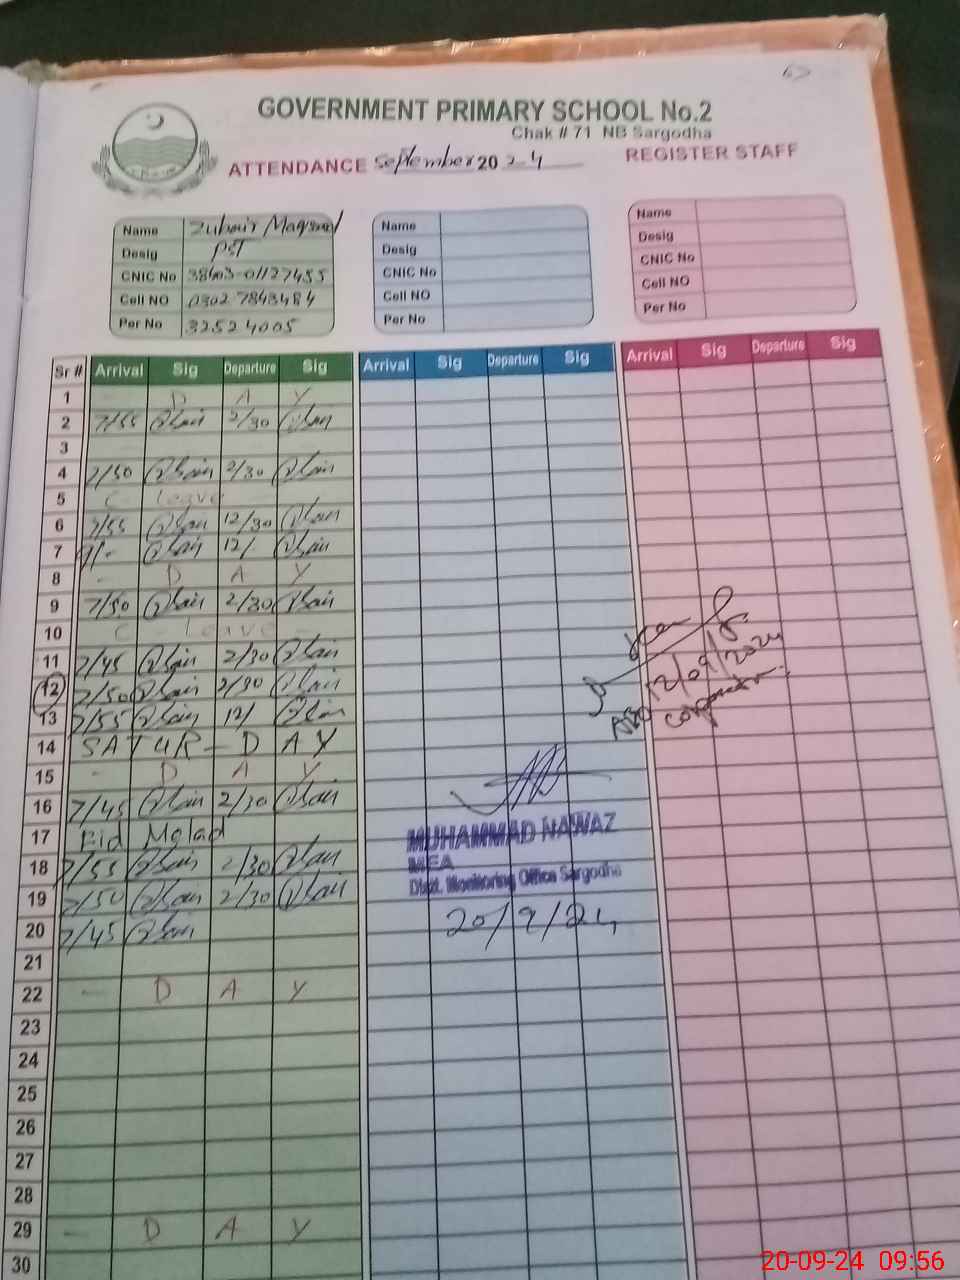 GOVERNMENT PRIMARY SCHOOL No.2
Chak # 71 NB Sargodha
ATTENDANCE September 2024 REGISTER STAFF
Name Zubair Maqsood
Desig PST
CNIC No 38403-01127455
Cell NO 0302 7843484
Per No 32524005
Name
Desig
CNIC No
Cell NO
Per No
Name
Desig
CNIC No
Cell NO
Per No
Sr # Arrival Sig Departure Sig Arrival Sig Departure Sig Arrival Sig Departure Sig
1 - D A Y
2 7/55 2/30
3
4 7/50 2/30
5 C - leave
6 7/55 12/30
7 9/- 12/-
8 - D A Y
9 7/50 2/30
10 C - Leave -
11 7/45 2/30
12 7/50 2/30
13 7/55 12/
14 SATUR-DAY
15 - D A Y
16 7/45 2/30
17 Eid Melad
18 7/55 2/30
19 7/50 2/30
20 7/45
21
22 - D A Y
23
24
25
26
27
28
29 - D A Y
30
12/09/2024
MUHAMMAD NAWAZ
MEA
Distt. Monitoring Office Sargodha
20/9/24
20-09-24 09:56